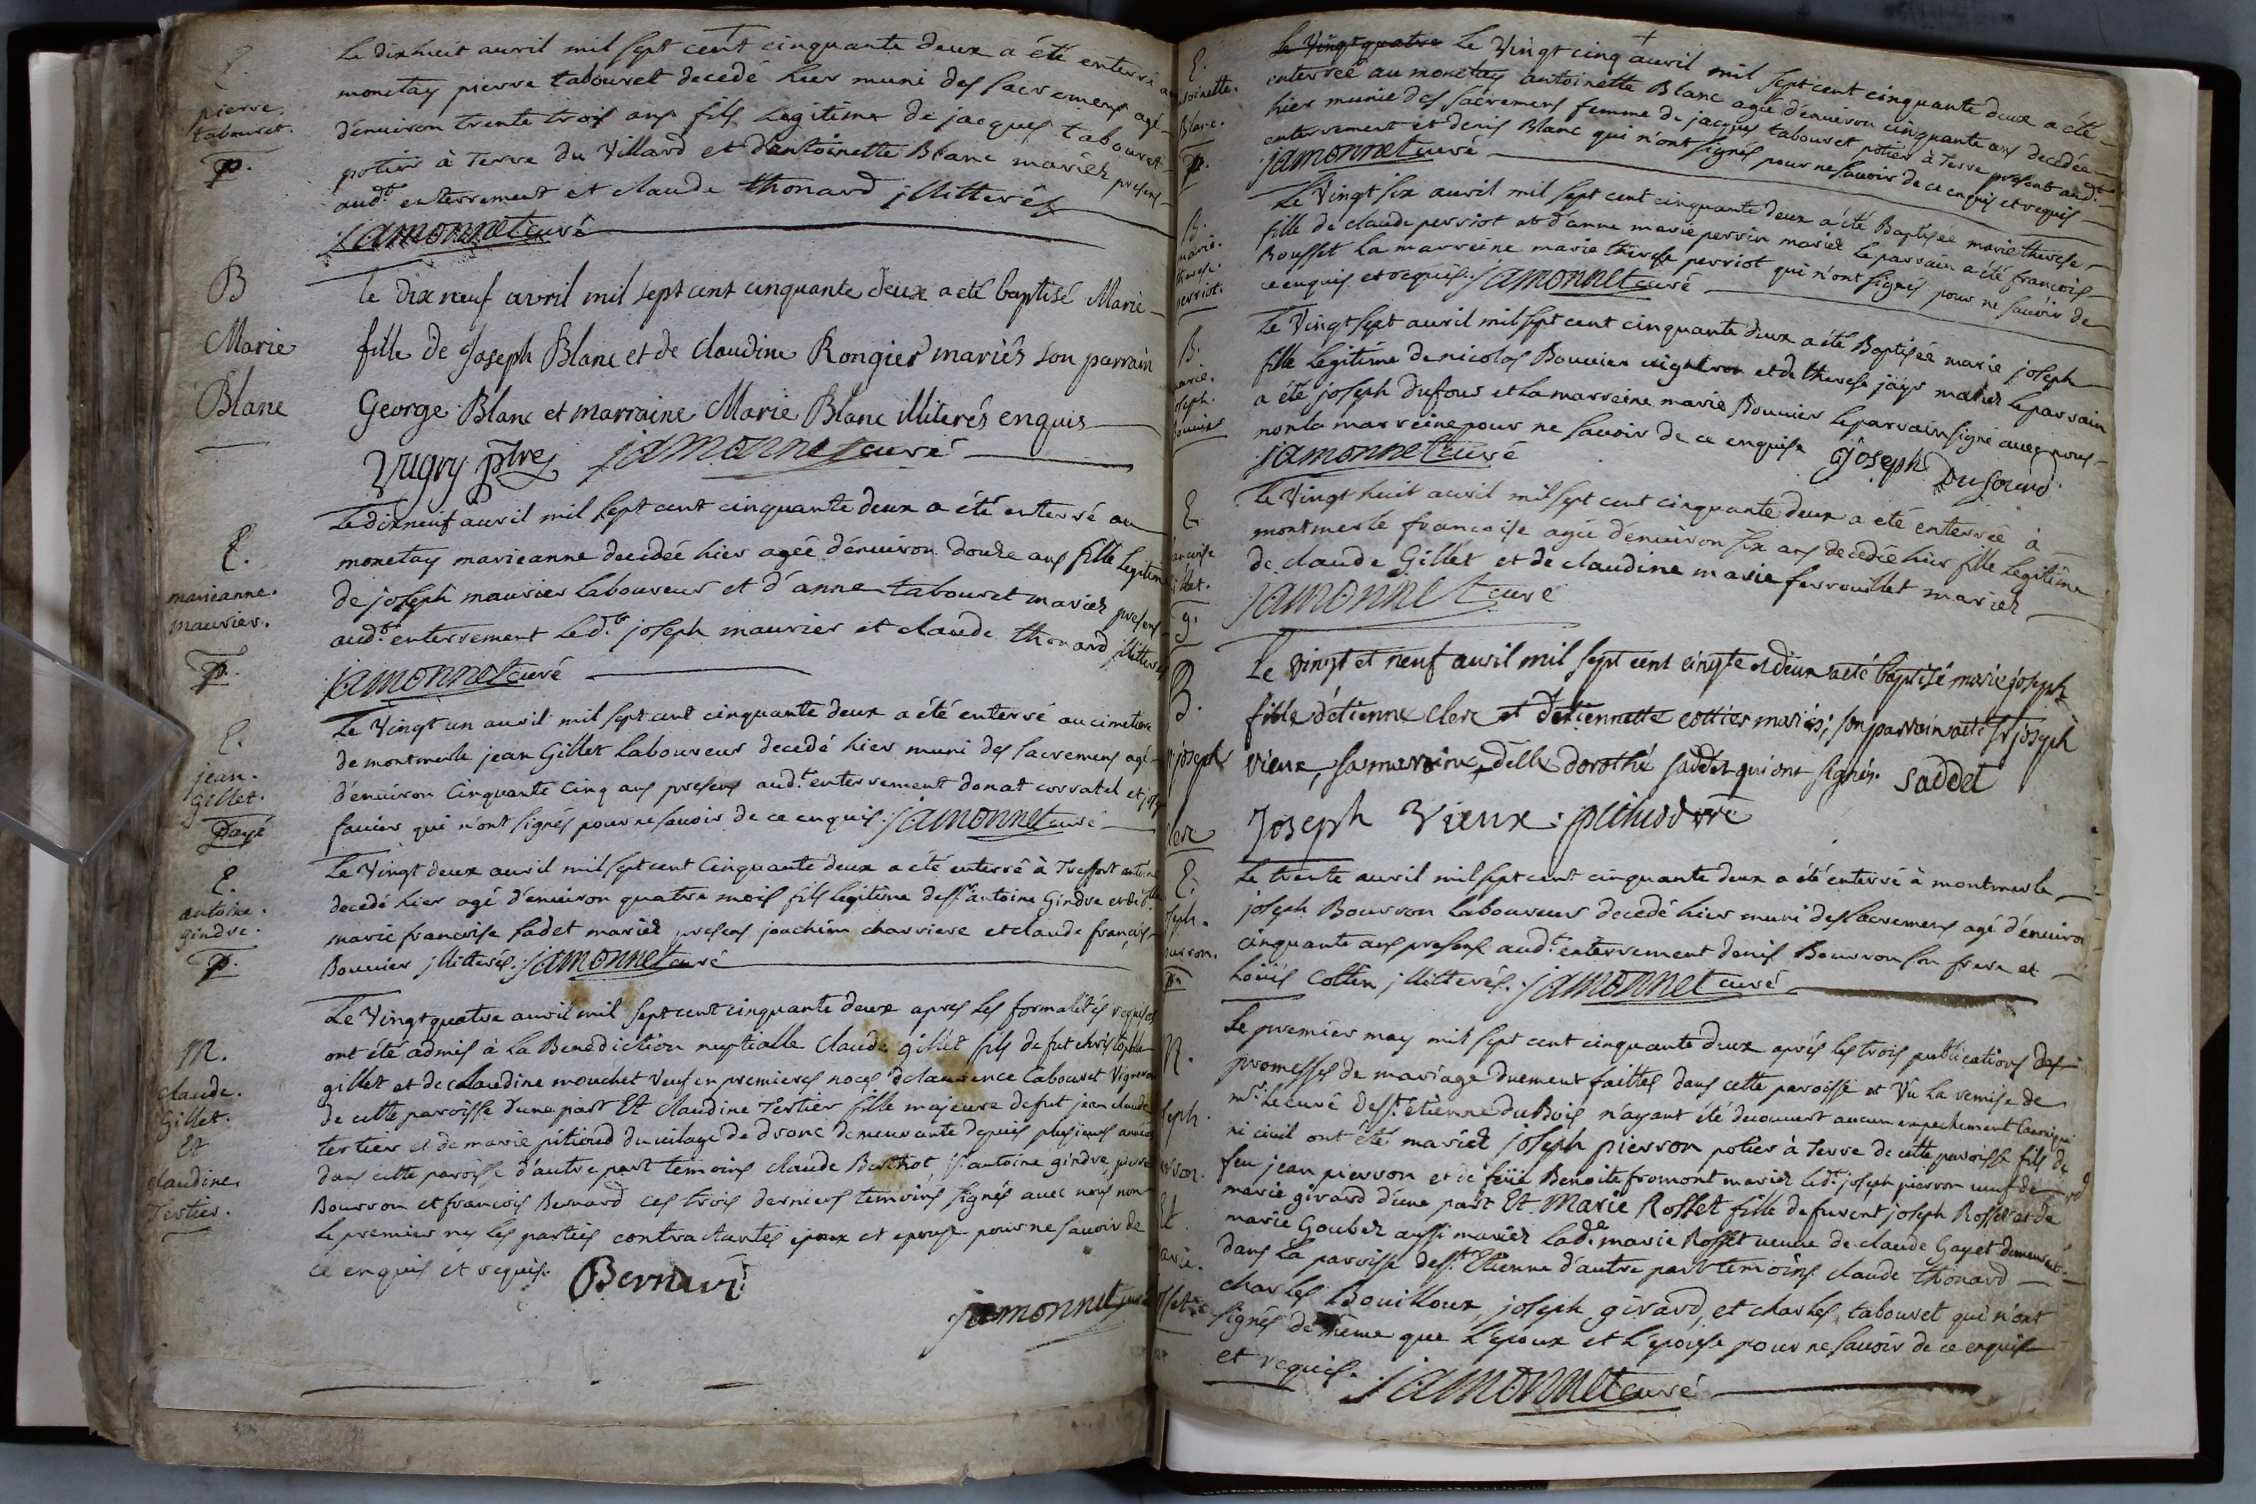 E.
pierre
tabouret.
p.
Le dixhuit auril mil sept cent cinquante deux a été enterré au
monetay pierre tabouret decedé hier muni des sacremens agé
d'enuiron trente trois ans fils legitime de jacques tabouret
potier à terre du Villard et d'antoinette Blanc mariéz presens
aud.t enterrement et claude thonard jllitterés
jamonnet curé
B
Marie
Blanc
le dix neuf avril mil sept cent cinquante deux a eté baptisé Marie
fille de Joseph Blanc et de claudine Rongier mariês son parrain
George Blanc et marraine Marie Blanc illiterés enquis
Vugry ptre jamonnet curé
E.
marieanne.
maurier.
p.
Le dixneuf auril mil sept cent cinquante deux a été enterré au
monetay marieanne decedée hier agée d'enuiron douze ans fille legitime
de joseph maurier laboureur et d'anne tabouret mariez presens
aud.t enterrement led.t joseph maurier et claude thonard jllitterés
jamonnet curé
E.
jean.
gillet.
Payé
Le Vingt un auril mil sept cent cinquante deux a été enterré au cimetiere
de montmerle jean Gillet laboureur decedé hier muni des sacremens agé
d'enuiron Cinquante Cinq ans presens aud.t enterrement donat corratel et
fauier qui n'ont signés pour ne sauoir de ce enquis jamonnet curé
E.
antoine.
gindre.
p.
Le Vingt deux auril mil sept cent Cinquante deux a été enterré à Treffort antoine
decedé hier agé d'enuiron quatre mois fils legitime de sr. antoine Gindre et de
marie francoise sadet mariéz presens joachim charriere et claude françois
Bouuier jllitterés. jamonnet curé
M.
claude.
Gillet.
Et
claudine.
Tertier.
Le Vingt quatre auril mil sept cent cinquante deux apres les formalités requises
ont été admis à la Benediction nuptialle Claude gillet fils de fut christophe
gillet et de claudine mouchet Veuf en premieres noces de laurence tabouret Vigneron
de cette paroisse d'une part Et claudine Tertier fille majeure de fut jean claude
tertier et de marie pitioud du uilage de dronc demeurante depuis plusieurs années
dans cette paroisse d'autre part temoins claude Berthot sr. antoine gindre pierre
Bourron et francois Bernard ces trois derniers temoins signés auec nous non
le premier ny les parties contractantes epoux et epouse pour ne sauoir de
ce enquis et requis. Bernard
jamonnet curé
E.
antoinette.
Blanc.
p.
le Vingt quatre Le Vingt cinq auril mil sept cent cinquante deux a été
enterrée au monetay antoinette Blanc agée d'enuiron cinquante ans decedée
hier munie des sacremens femme de jacques tabouret potier à terre present aud.t
enterrement et denis Blanc qui n'ont signés pour ne sauoir de ce enquis et requis
jamonnet curé
B.
marie.
therese.
perriot.
Le Vingt six auril mil sept cent cinquante deux a été Baptisée marie therese
fille de claude perriot et d'anne marie perrin mariéz le parrain a été francois
Bousset la marreine marie therese perriot qui n'ont signés pour ne sauoir de
ce enquis et requis. jamonnet curé
B.
marie.
joseph.
Bouuier
Le Vingt sept auril mil sept cent cinquante deux a été Baptisée marie joseph
fille legitime de nicolas Bouuier uigneron et de therese jayr mariéz le parrain
a été joseph dufour et la marreine marie Bouuier le parrain signé auec nous
non la marreine pour ne sauoir de ce enquise joseph Dufourd
jamonnet curé
E.
francoise
Gillet.
g.
Le Vingt huit auril mil sept cent cinquante deux a été enterrée à
montmerle francoise agée d'enuiron six ans decedée hier fille legitime
de claude Gillet et de claudine marie ferrouillet mariéz
jamonnet curé
B.
m joseph
clerc
Le vingt et neuf auril mil sept cent cinqte et deux a eté baptisé marie joseph
fille d'etienne clerc et d'etiennette cottier mariés; son parrain a eté sr joseph
vieux, sa marraine delle dorothé saddet qui ont signés. saddet
Joseph Vieux.
E.
joseph.
Bourron.
p.
Le trente auril mil sept cent cinquante deux a été enterré à montmerle
joseph Bourron laboureur decedé hier muni des sacremens agé d'enuiron
cinquante ans presens aud.t enterrement denis Bourron son frere et
Loüis Cottin jllitterés. jamonnet curé
M.
joseph.
pierron.
Et
marie.
Rosset.
Le premier may mil sept cent cinquante deux aprés les trois publications des
promesses de mariage duement faittes dans cette paroisse et Vu la remise de
mr. le curé de st. etienne du Bois n'ayant été decouuert aucun empechement canonique
ni ciuil ont été mariéz joseph pierron potier à terre de cette paroisse fils de
feu jean pierron et de feüe Benoite fromont mariéz led.t joseph pierron ueuf de
marie girard d'une part Et Marie Rosset fille de furent joseph Rosset et de
marie Goubez aussi mariéz lad.e marie Rosset ueuue de claude Gayet demeurante
dans la paroisse de st. Etienne d'autre part temoins claude thonard
charles Bouilloux, joseph girard, et charles tabouret qui n'ont
signés de même que l'epoux et l'epouse pour ne sauoir de ce enquis
et requis. jamonnet curé